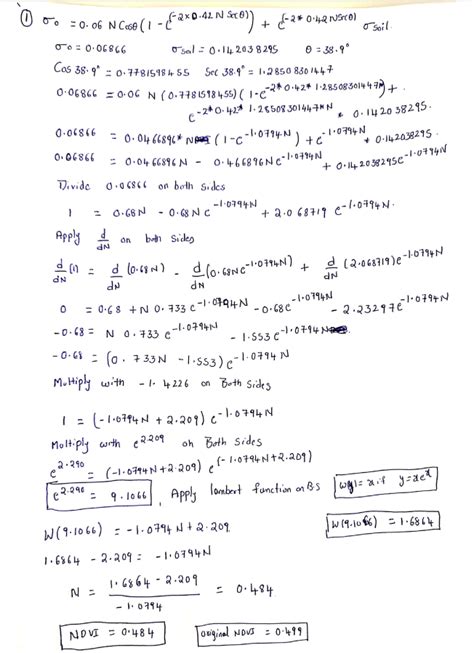 ① σo = 0.06 N Cosθ (1 - e^(-2*0.42 N Sec θ)) + e^(-2*0.42 N Sec θ) σsoil.
σo = 0.06866 σsoil = 0.142038295 θ = 38.9°
Cos 38.9° = 0.7781598455 Sec 38.9° = 1.28508301447
0.06866 = 0.06 N (0.7781598455) (1 - e^(-2*0.42* 1.28508301447*N)) +
e^(-2*0.42* 1.28508301447*N) * 0.142038295.
0.06866 = 0.0466896* N (1 - e^(-1.0794N)) + e^(-1.0794N) * 0.142038295.
0.06866 = 0.0466896N - 0.466896N e^(-1.0794N) + 0.142038295 e^(-1.0794N)
Divide 0.06866 on both sides
1 = 0.68N - 0.68N e^(-1.0794N) + 2.068719 e^(-1.0794N).
Apply d/dN on both sides
d/dN (1) = d/dN (0.68N) - d/dN (0.68N e^(-1.0794N)) + d/dN (2.068719) e^(-1.0794N)
0 = 0.68 + N 0.733 e^(-1.0794N) - 0.68 e^(-1.0794N) - 2.23297 e^(-1.0794N)
-0.68 = N 0.733 e^(-1.0794N) - 1.553 e^(-1.0794N)
-0.68 = (0.733N - 1.553) e^(-1.0794N)
Multiply with -1.4226 on Both Sides
1 = (-1.0794N + 2.209) e^(-1.0794N)
Multiply with e^2.209 on Both sides
e^2.290 = (-1.0794N + 2.209) e^(-1.0794N + 2.209)
e^2.290 = 9.1066, Apply lambert function on B.S
W(y) = x if y = xe^x
W(9.1066) = -1.0794N + 2.209
W(9.1066) = 1.6864
1.6864 - 2.209 = -1.0794N
N = 1.6864 - 2.209 / -1.0794 = 0.484
NDVI = 0.484
original NDVI = 0.499